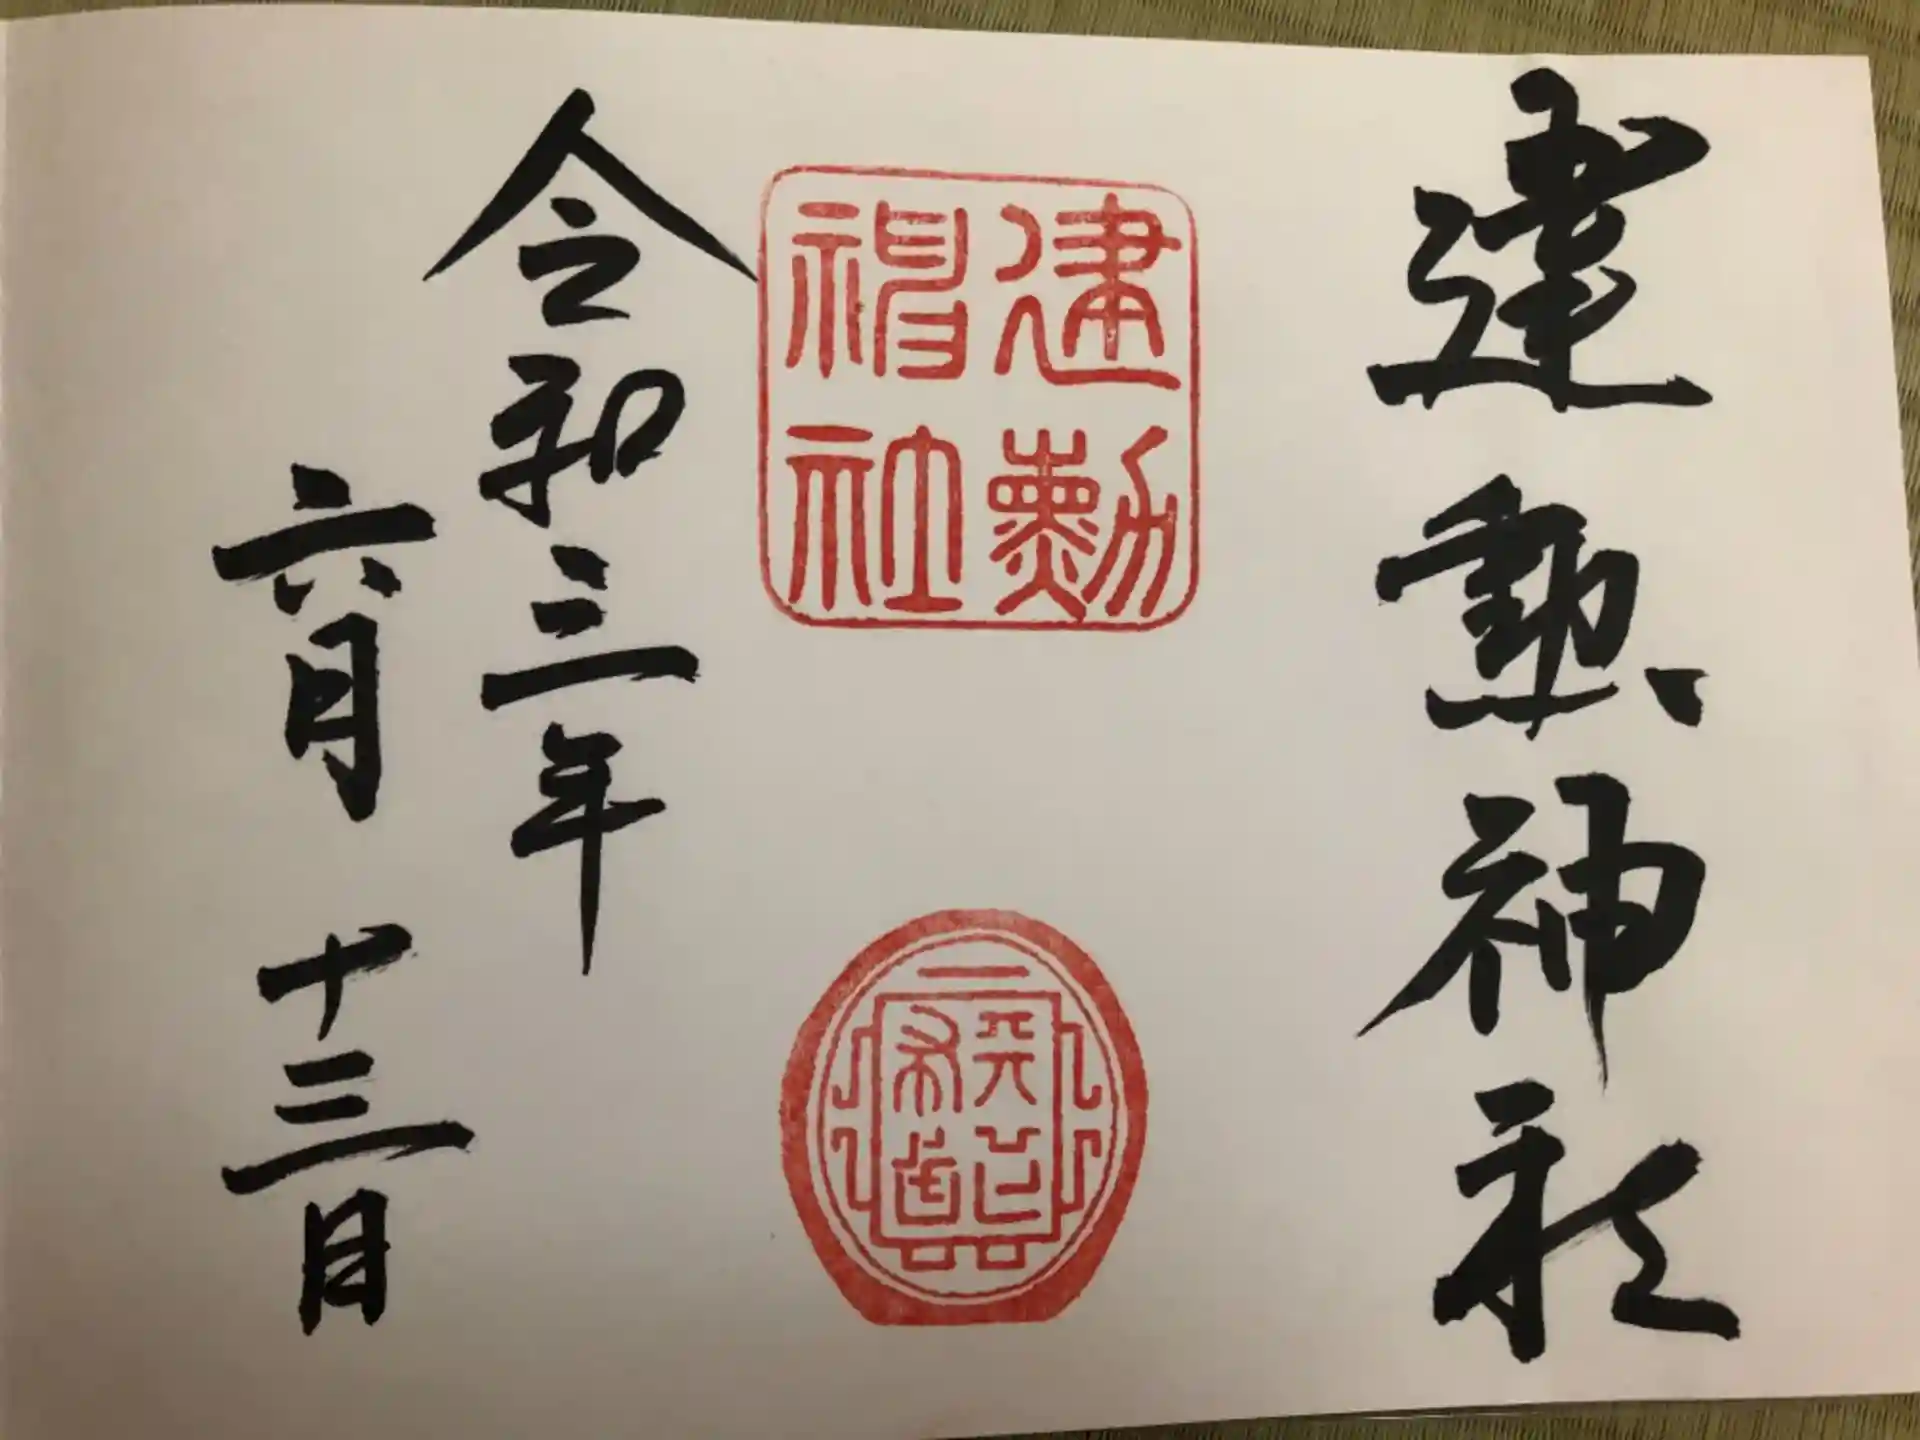 建勲神社
建勲
神社
天下布武
令和三年
六月 十三日